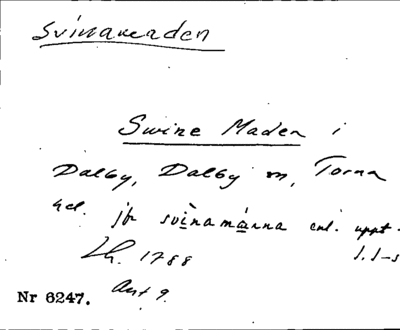 Svinamaden
Swine Maden i
Dalby, Dalby sn, Torna
hd. jfr svinamàrna enl. uppt.
Lh. 1788 1.1-s
Akt 9.
Nr 6247.